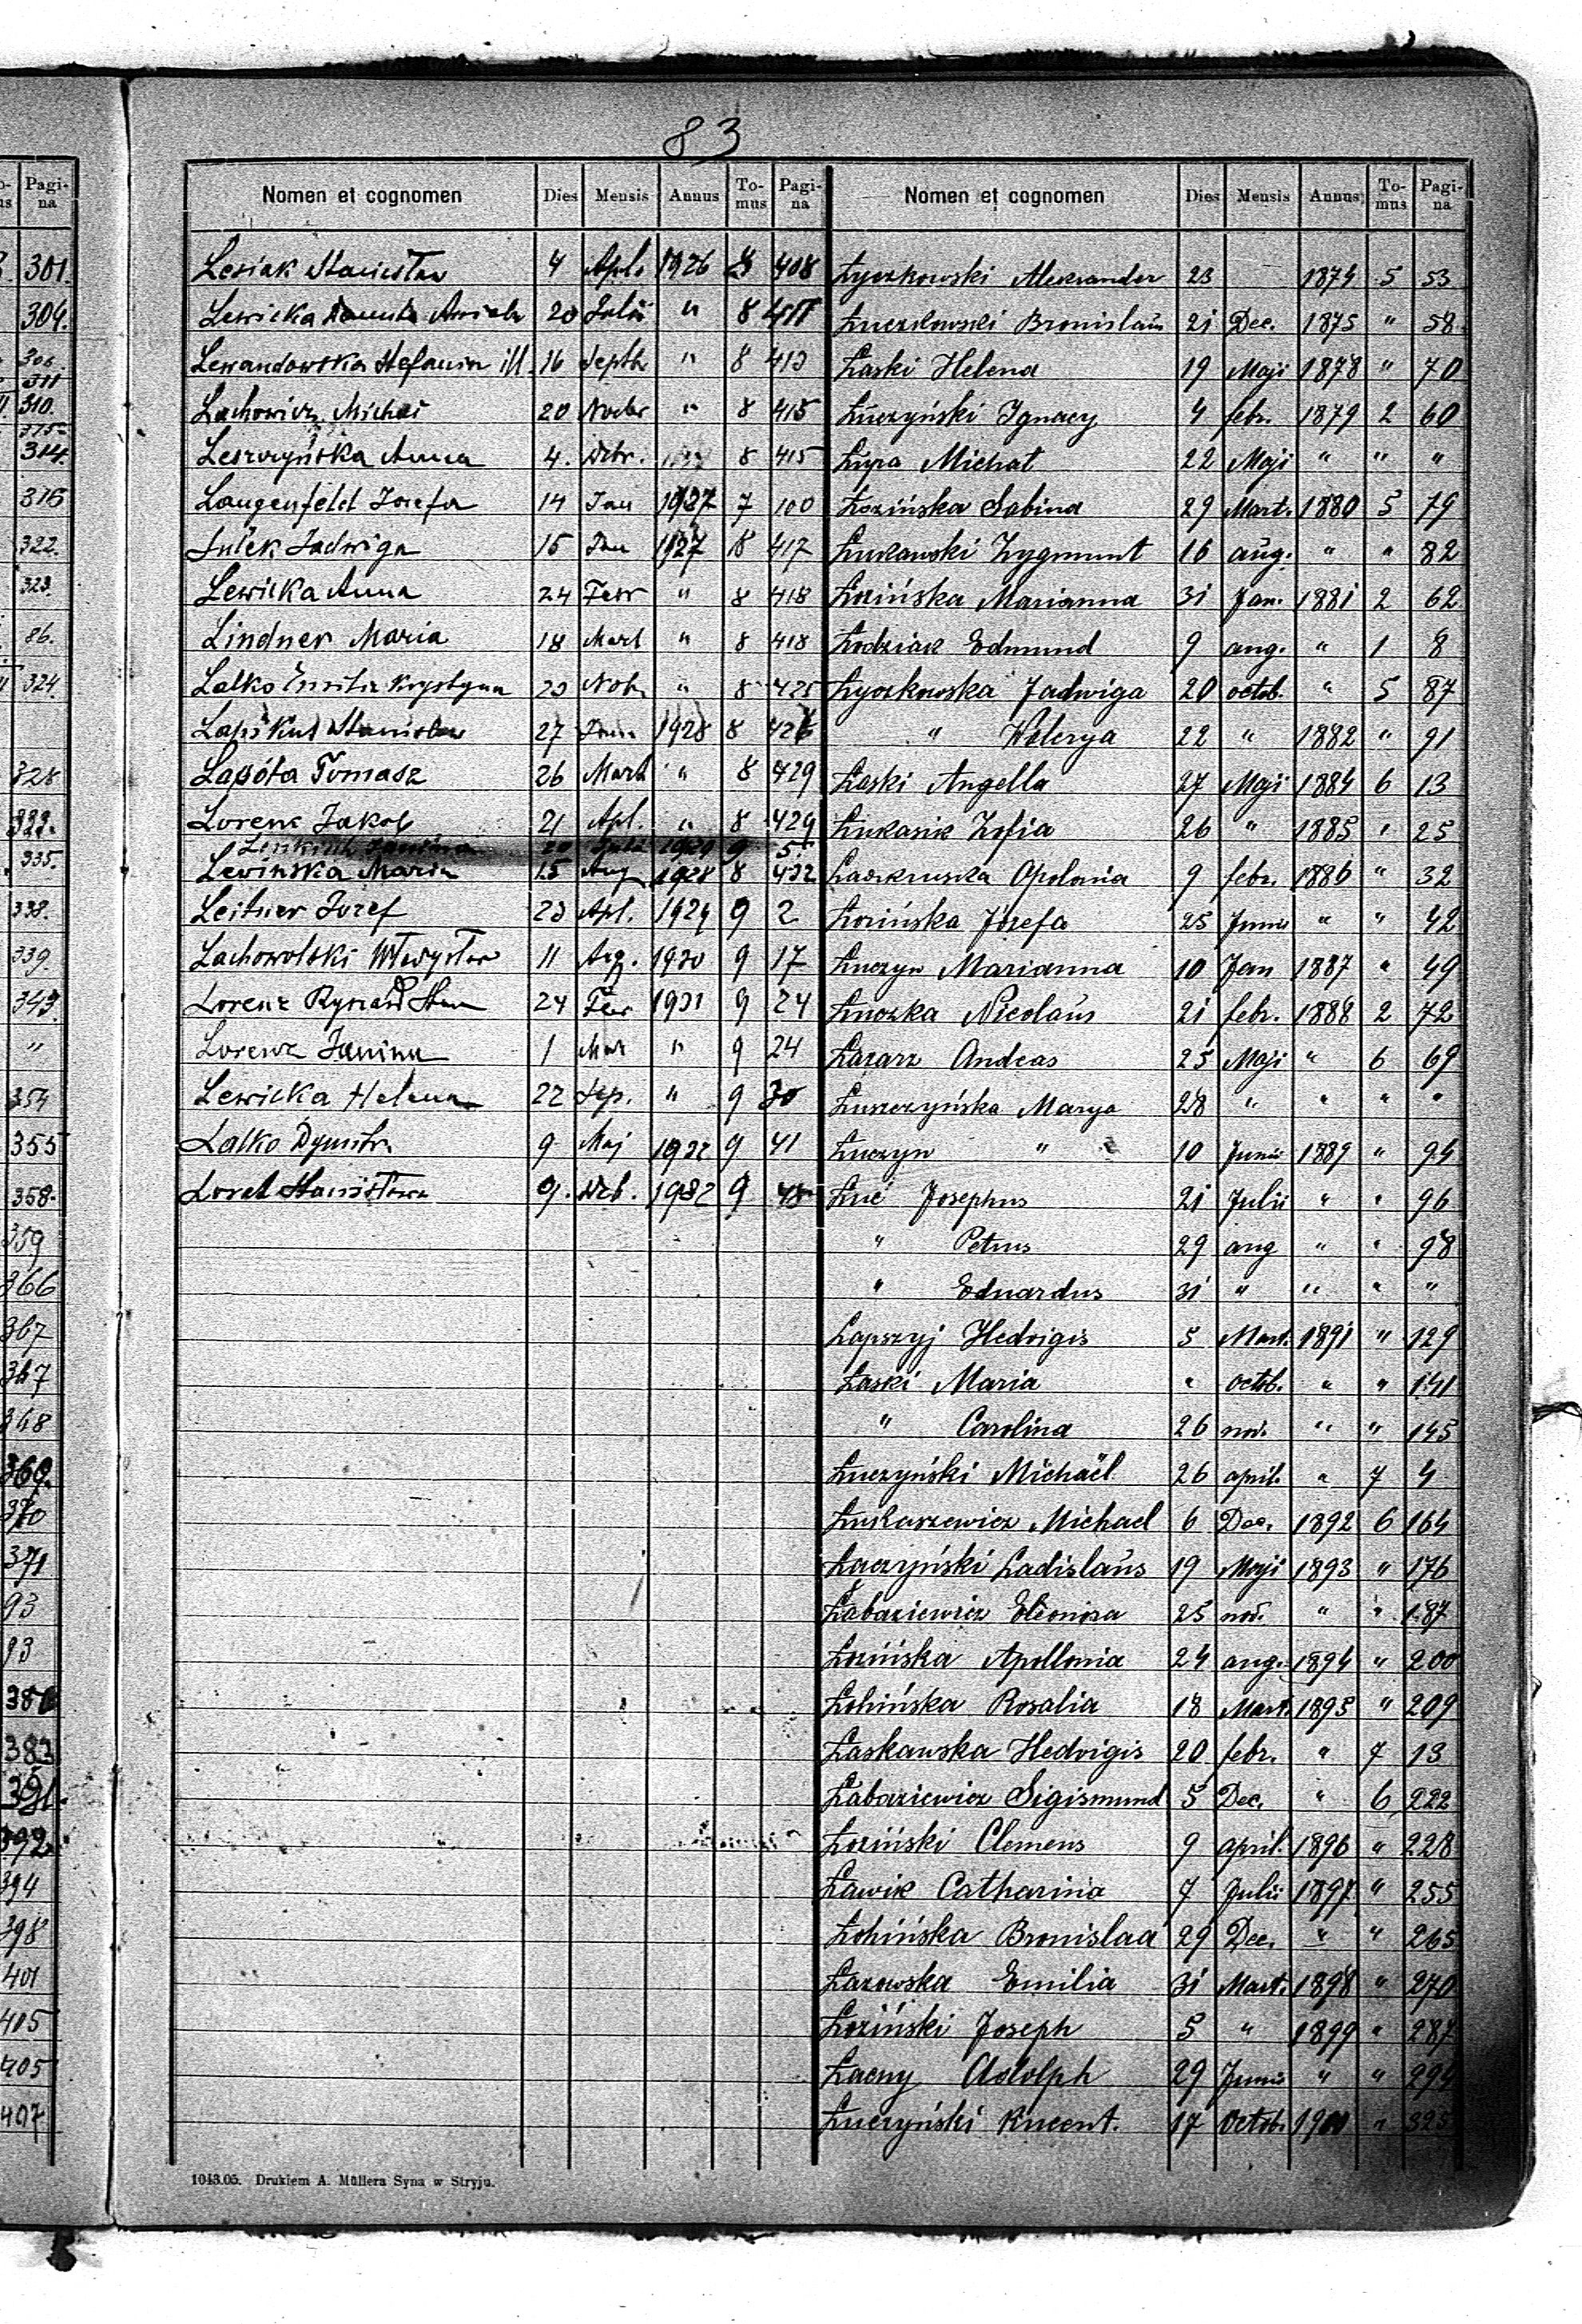 83
Pagi-
na
301.
304.
306
311
310.
314.
316
322.
323.
86.
324.
328
335.
338.
339.
343.
"
354
355
358.
359
366
367
367
368
369.
370
371
93
93
383
391.
392.
394
398
401
405
405
407
Nomen et cognomen Dies Mensis Annus To-mus Pagi-na
Lesiak Stanisław 4 Apl. 1926 8 408
Lewicka Danuta Aniela 20 Julii " 8 411
Lewandowska Stefania ill. 16 Septb " 8 413
Lachowicz Michał 20 Novbr " 8 415
Leszczyńska Anna 4. Dcbr. 8 415
Langenfeld Josefa 14 Jan 1927 7 100
Lulek Jadwiga 15 Jan 1927 8 417
Lewicka Anna 24 Febr " 8 418
Lindner Maria 18 Mart " 8 418
Lalko Krystyna 23 Nob. " 8 425
Stanisław 27 1928 8 426
Lapóta Tomasz 26 Mart " 8 429
Lorenc Jakob 21 Apl. " 8 429
Janina 20 Julii 1929 9 5.
Lewińska Maria 15 Aug 1928 8 432
Leitner Józef 23 Apl. 1929 9 2
Lachowolski Władysław 11 Aug. 1930 9 17
Lorenz Ryszard 24 Febr 1931 9 24
Lorenz Janina 1 Mar " 9 24
Lewicka Helena 22 Sep. " 9 30
Lalko Dymitr 9 Maj 1932 9 41
Loret Stanisława 9. Dcb. 1932 9 48
Nomen et cognomen Dies Mensis Annus To-mus Pagi-na
Łyczkowski Aleksander 23 1874 5 53
Łuczkowski Bronislaus 21 Dec. 1875 " 58
Łaski Helena 19 Maji 1878 " 70
Łuczyński Ignacy 4 febr. 1879 2 60
Łupa Michał 22 Maji " " "
Łozińska Sabina 29 Mart. 1880 5 79
Łukawski Zygmunt 16 aug. " " 82
Łozińska Marianna 31 Jan. 1881 2 62
Łodziak Edmund 9 aug. " 1 8
Łyczkowska Jadwiga 20 octob. " 5 87
" Walerya 22 " 1882 " 91
Łaski Angella 27 Maji 1884 6 13
Łukasik Zofia 26 " 1885 " 25
Apolonia 9 febr. 1886 " 32
Łozińska Józefa 25 Junii " " 42
Łuczyn Marianna 10 Jan 1887 " 49
Łuczka Nicolaus 21 febr. 1888 2 72
Łazarz Andeas 25 Maji " 6 69
Łuszczyńska Marya 28 " " " "
Łuczyn " 10 Junii 1889 " 94
Łuć Josephus 21 Julii " " 96
" Petrus 29 aug " " 98
" Eduardus 31 " " " "
Łapszyj Hedvigis 5 Mart. 1891 " 129
Łaski Maria " octob. " " 141
" Carolina 26 nov. " " 145
Łuczyński Michaël 26 april. " 7 4
Łukaszewicz Michael 6 Dec. 1892 6 164
Łaczyński Ladislaus 19 Maji 1893 " 176
Łabaziewicz Eleonora 25 nov. " " 187
Łozińska Apollonia 24 aug. 1894 " 200
Łohińska Rosalia 18 Mart. 1895 " 209
Łaskawska Hedvigis 20 febr. " 7 13
Łabaziewicz Sigismund 5 Dec. " 6 222
Łoziński Clemens 9 april. 1896 " 228
Ławik Catharina 7 Julii 1897 " 255
Łohińska Bronislaa 29 Dec. " " 265
Łazowska Emilia 31 Mart. 1898 " 270
Łoziński Joseph 5 " 1899 " 287
Łacny Adolph 29 Junii " " 294
Łuczyński 17 Octob. " 325
1043.05. Drukiem A. Müllera Syna w Stryju.